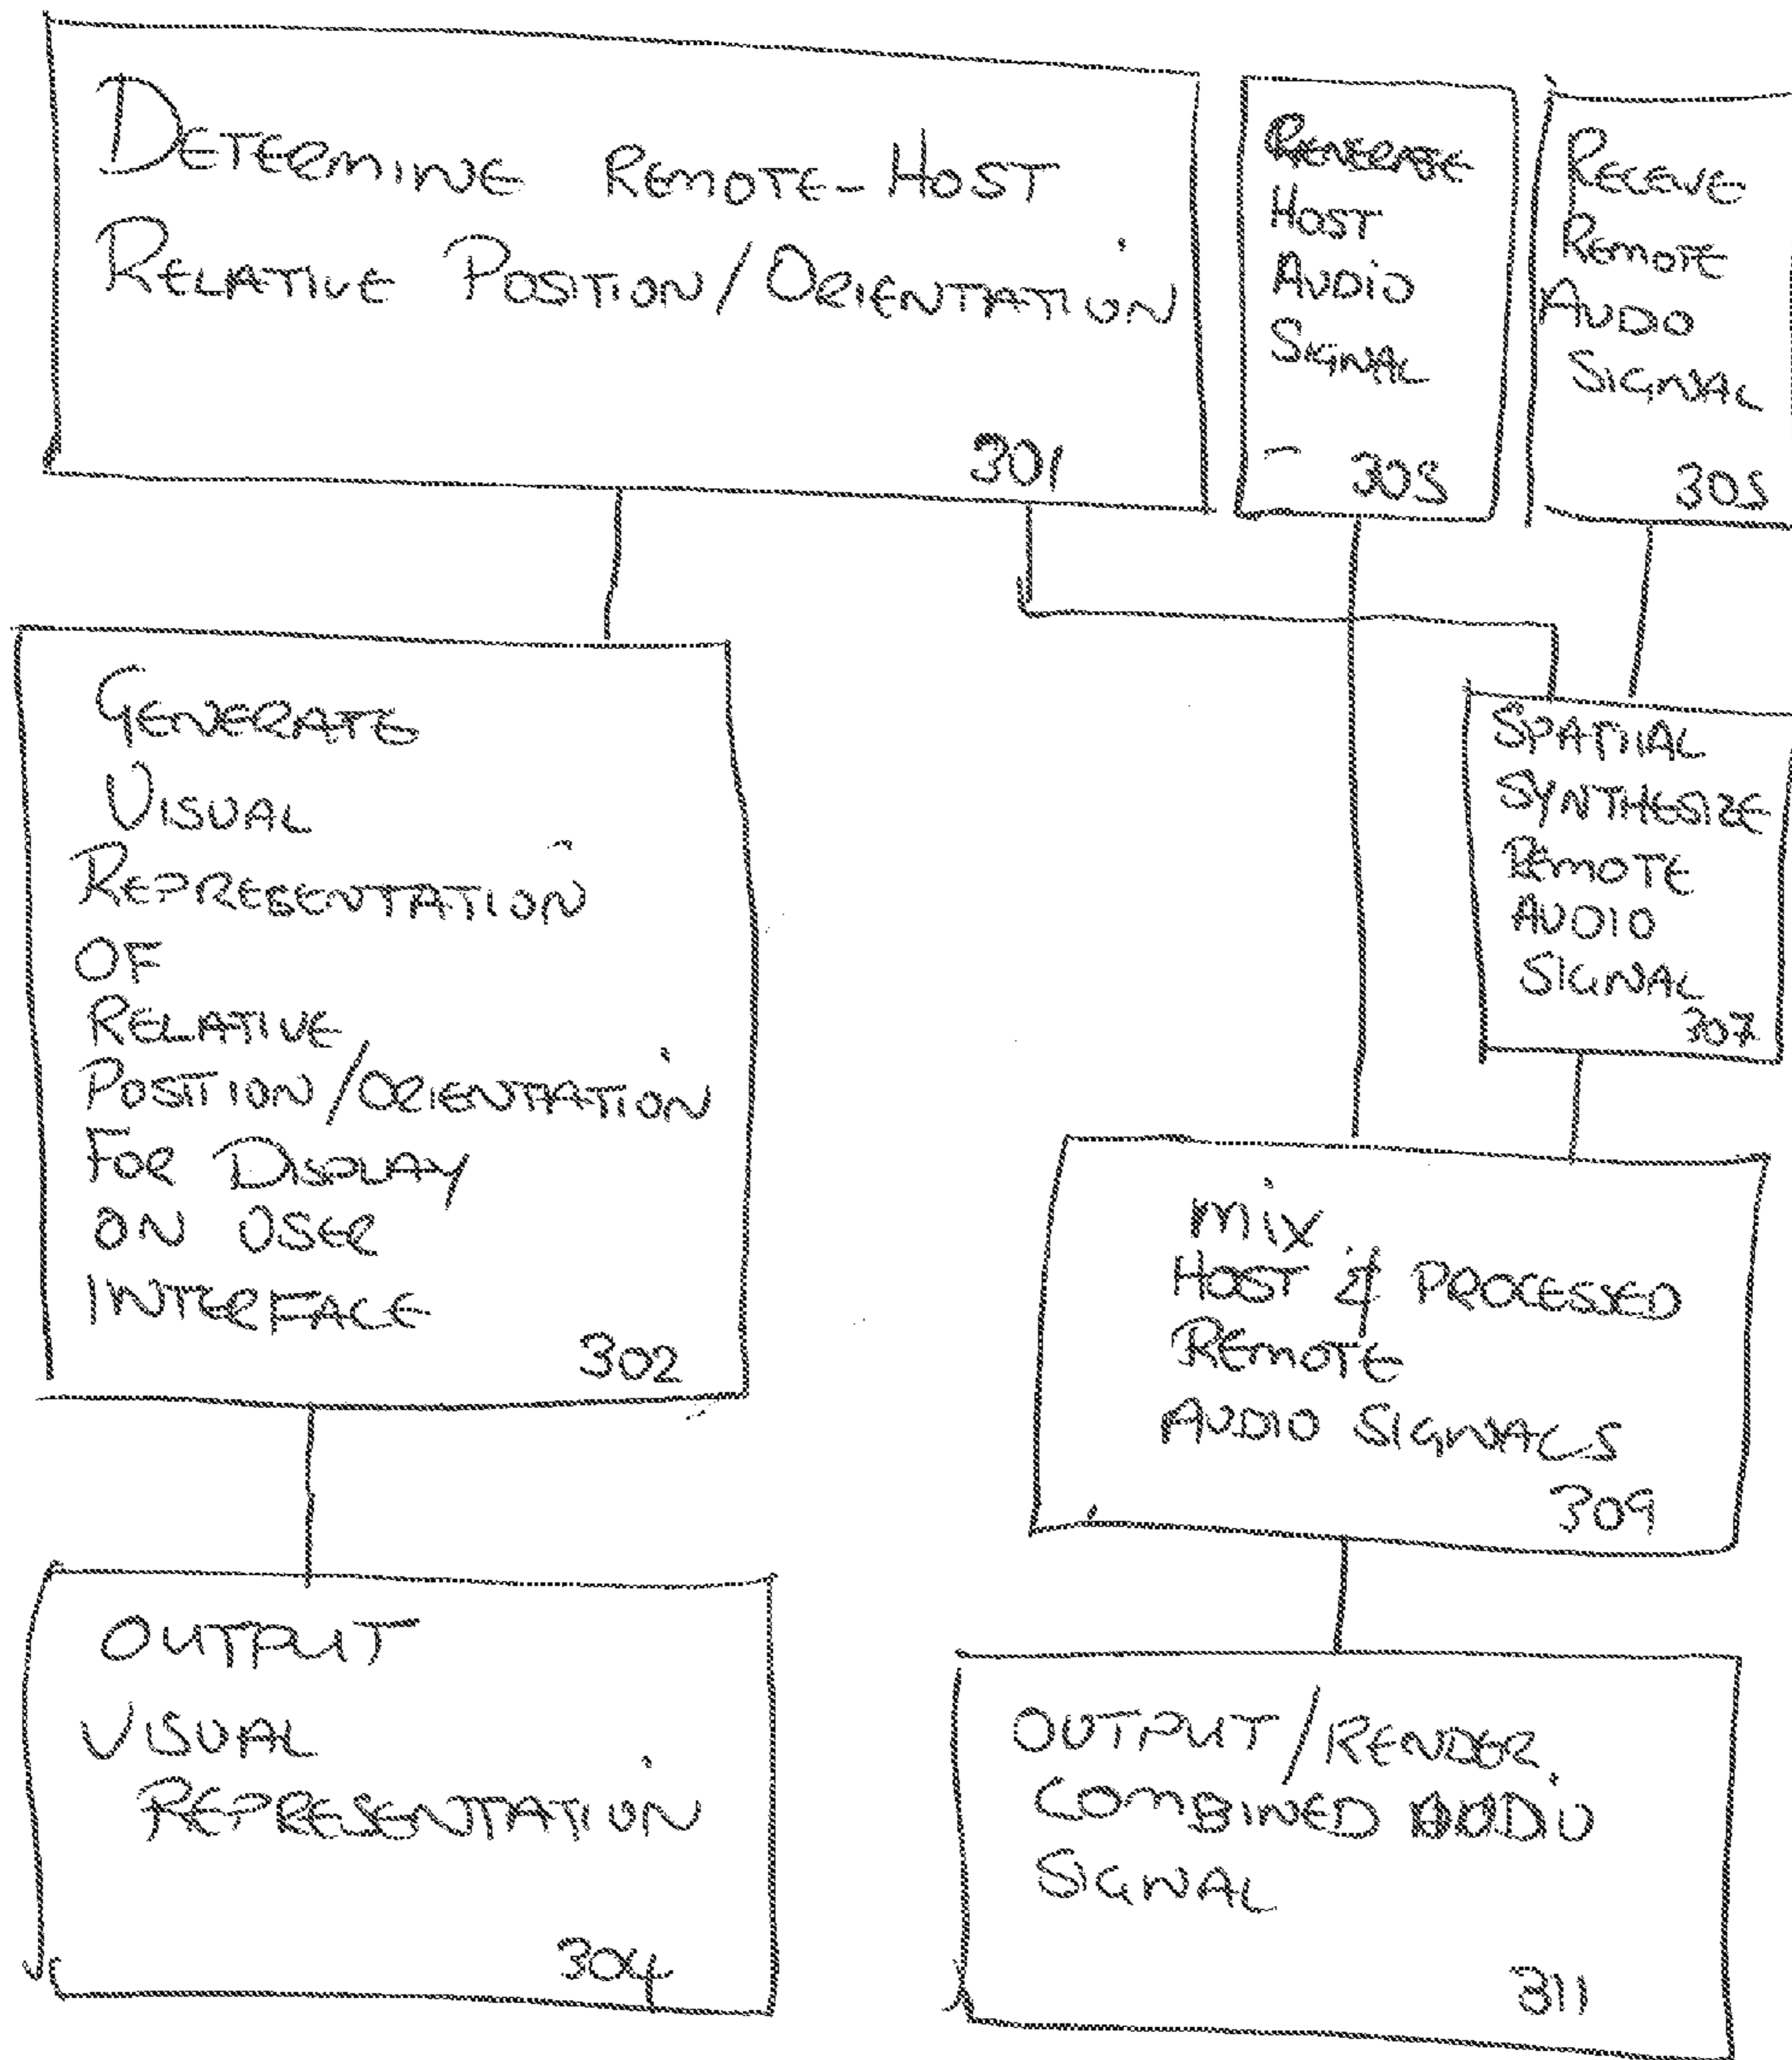 DETERMINE REMOTE-HOST
RELATIVE POSITION/ORIENTATION
301
GENERATE
HOST
AUDIO
SIGNAL
305
RECEIVE
REMOTE
AUDIO
SIGNAL
305
GENERATE
VISUAL
REPRESENTATION
OF
RELATIVE
POSITION/ORIENTATION
FOR DISPLAY
ON USER
INTERFACE
302
SPATIAL
SYNTHESIZE
REMOTE
AUDIO
SIGNAL
307
MIX
HOST & PROCESSED
REMOTE
AUDIO SIGNALS
309
OUTPUT
VISUAL
REPRESENTATION
304
OUTPUT/RENDER
COMBINED AUDIO
SIGNAL
311